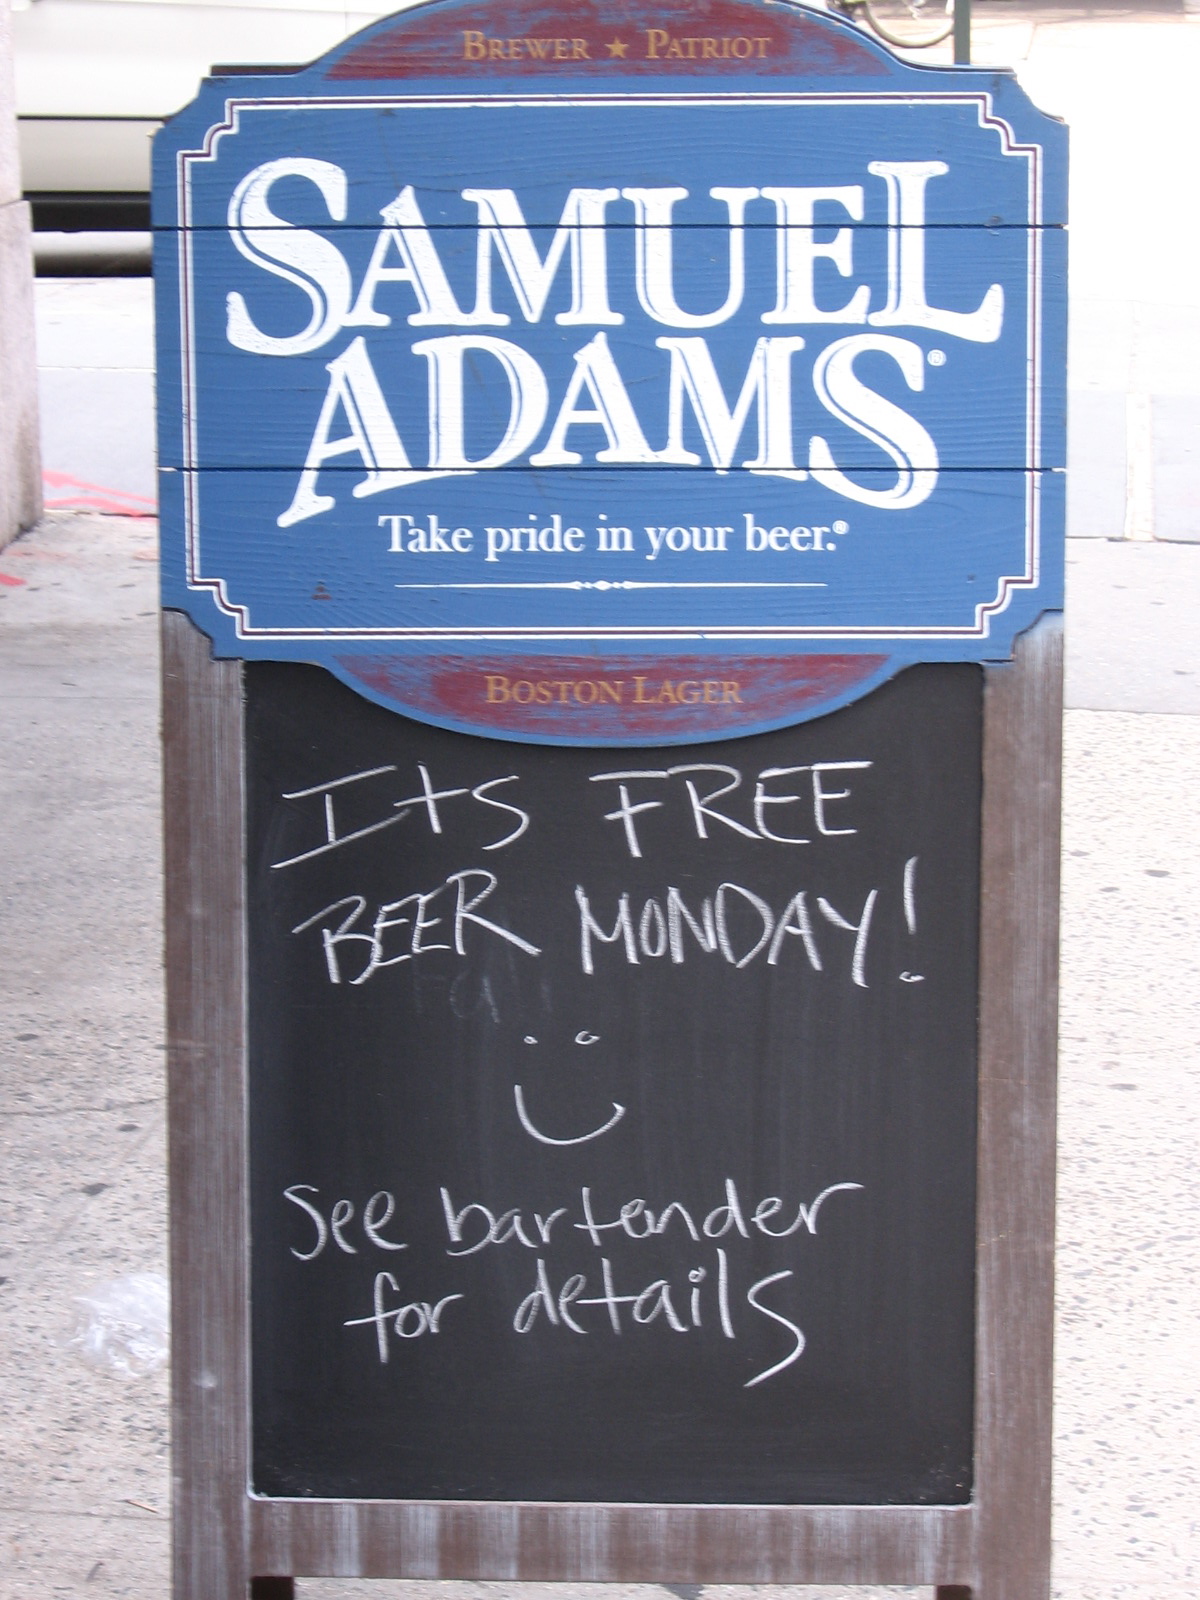 BREWER ★ PATRIOT
SAMUEL
ADAMS®
Take pride in your beer.®
BOSTON LAGER
Its FREE
BEER MONDAY!
See bartender
for details